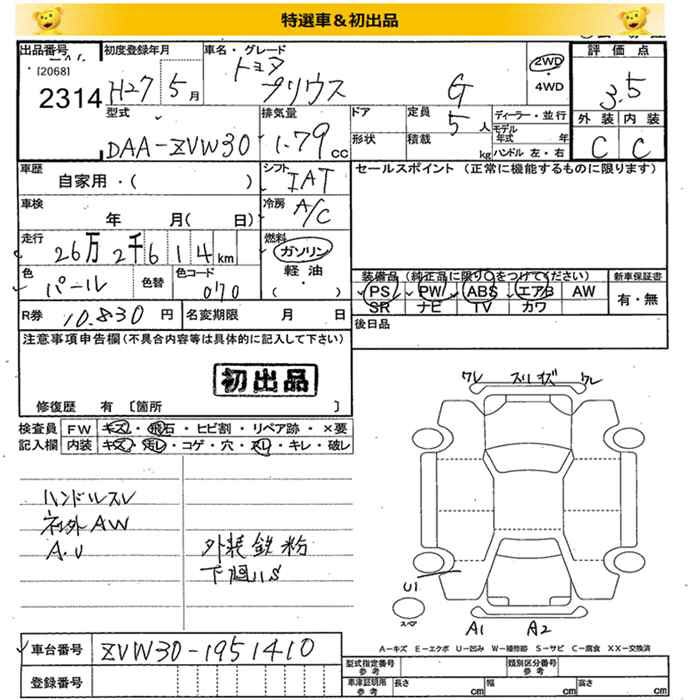 特選車＆初出品
出品番号 初度登録年月 車名・グレード 評価点
[2068] トヨタ 2WD
2314 H27 5月 プリウス G ・4WD 3.5
型式 排気量 ドア 定員 ディーラー・並行 外装 内装
5人 モデル年式 年
DAA-ZVW30 1.79cc 形状 積載 kg ハンドル 左・右 C C
車歴 シフト セールスポイント (正常に機能するものに限ります)
自家用・( ) IAT
車検 冷房
年 月( 日) A/C
走行 燃料
26万2千614km ガソリン
色 色替 色コード 軽油 装備品(純正品に限り○をつけてください) 新車保証書
パール 070 ( ・ ) PS PW ABS エアB AW 有・無
SR ナビ TV カワ
R券 10.830円 名変期限 月 日 後日品
注意事項申告欄(不具合内容等は具体的に記入して下さい)
初出品
修復歴 有 [箇所 ]
検査員 FW キズ・飛石・ヒビ割・リペア跡・×要
記入欄 内装 キズ・汚レ・コゲ・穴・スレ・キレ・破レ
ワレ スリキズ ワレ
ハンドルスレ
社外AW
A.U 外装鉄粉
下廻りS
U1
A1 A2
A－キズ E－エクボ U－凹み W－補修跡 S－サビ C－腐食 XX－交換済
車台番号 ZVW30-1951410
型式指定番号 参考 類別区分番号 参考
登録番号 車庫証明用 参考 長さ cm 幅 cm 高さ cm